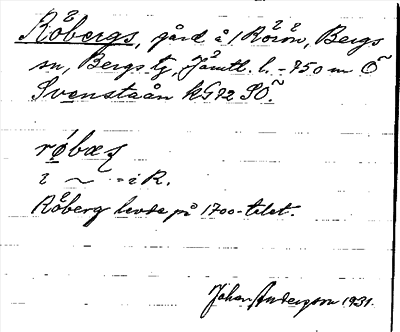 Röbergs, gård å 1 Rörön, Bergs
sn, Bergs tg, Jämtl. l. - 750 m Ö
Svenstaån kG72 SÖ.
røbæʃ
i ~ - i R.
Röberg levde på 1700-talet.
Johan Anderson 1931.